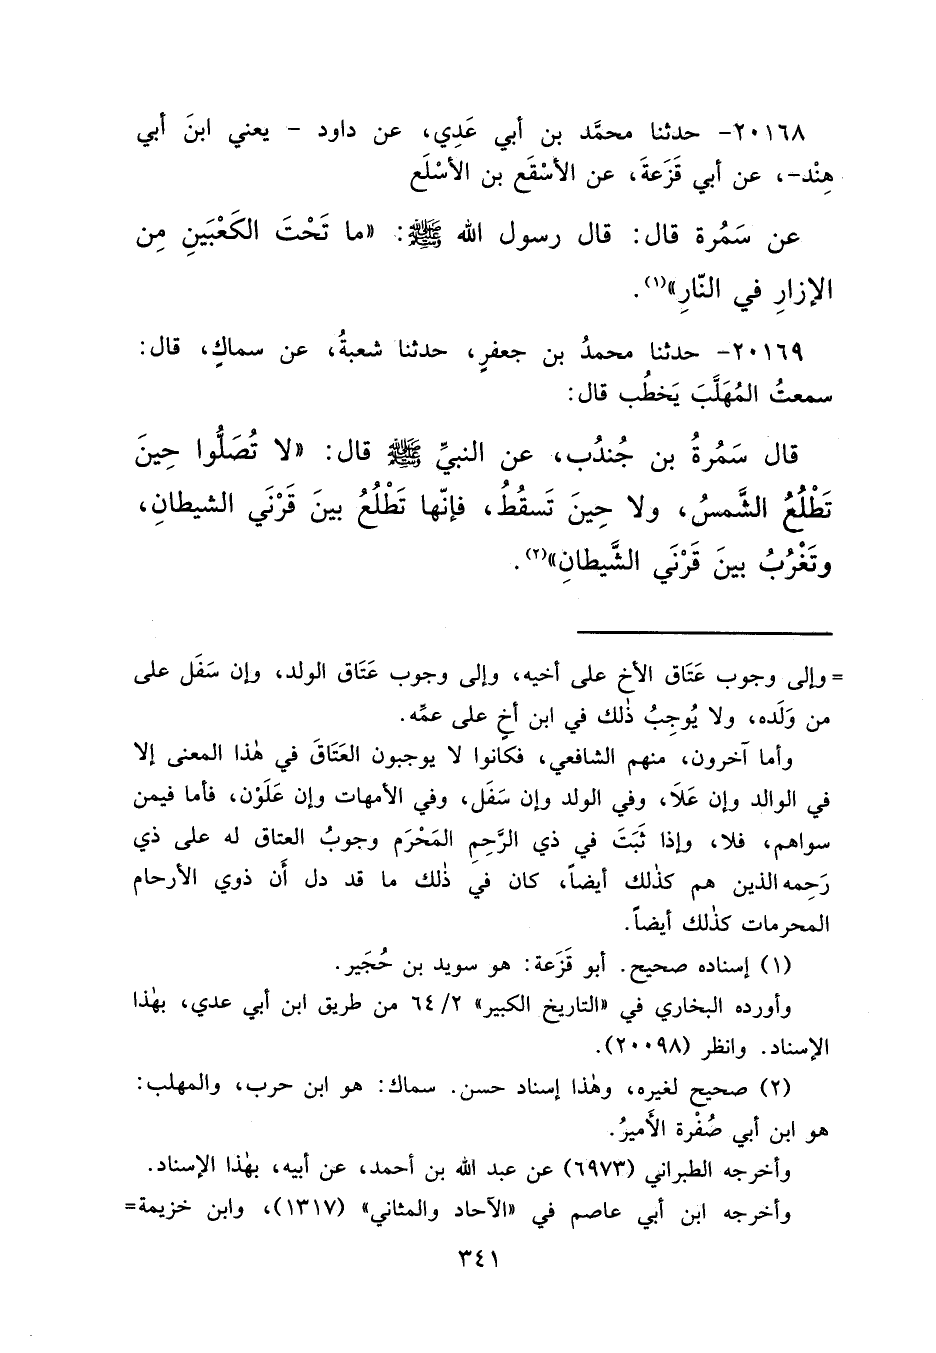 ٢٠١٦٨- حدثنا محمَّد بن أبي عَدِي، عن داود - يعني ابنَ أبي
هِنْد-، عن أبي قَزَعةَ، عن الأسْقَع بن الأسْلَع
عن سَمُرة قال: قال رسول الله ﷺ: «ما تَحْتَ الكَعْبَينِ مِن
الإزارِ في النّارِ»(١).
٢٠١٦٩- حدثنا محمدُ بن جعفرٍ، حدثنا شعبةُ، عن سماكٍ، قال:
سمعتُ المُهَلَّبَ يَخطُب قال:
قال سَمُرةُ بن جُندُب، عن النبيِّ ﷺ قال: «لا تُصَلُّوا حِينَ
تَطْلُعُ الشَّمسُ، ولا حِينَ تَسقُطُ، فإنّها تَطْلُعُ بينَ قَرْنَي الشيطانِ،
وتَغْرُبُ بينَ قَرْنَي الشَّيطانِ»(٢).
= وإلى وجوب عَتَاق الأخ على أخيه، وإلى وجوب عَتَاق الولد، وإن سَفَل على
من وَلَده، ولا يُوجِبُ ذٰلك في ابن أخٍ على عمِّه.
وأما آخرون، منهم الشافعي، فكانوا لا يوجبون العَتَاقَ في هٰذا المعنى إلا
في الوالد وإن عَلَا، وفي الولد وإن سَفَل، وفي الأمهات وإن عَلَوْن، فأما فيمن
سواهم، فلا، وإذا ثَبَتَ في ذي الرَّحِمِ المَحْرَم وجوبُ العتاق له على ذي
رَحِمه الذين هم كذٰلك أيضاً، كان في ذٰلك ما قد دل أَن ذوي الأرحام
المحرمات كذٰلك أيضاً.
(١) إسناده صحيح. أبو قَزَعة: هو سويد بن حُجَير.
وأورده البخاري في «التاريخ الكبير» ٢/ ٦٤ من طريق ابن أبي عدي، بهٰذا
الإسناد. وانظر (٢٠٠٩٨).
(٢) صحيح لغيره، وهٰذا إسناد حسن. سماك: هو ابن حرب، والمهلب:
هو ابن أبي صُفْرة الأَميرُ.
وأخرجه الطبراني (٦٩٧٣) عن عبد الله بن أحمد، عن أبيه، بهٰذا الإسناد.
وأخرجه ابن أبي عاصم في «الآحاد والمثاني» (١٣١٧)، وابن خزيمة=
٣٤١